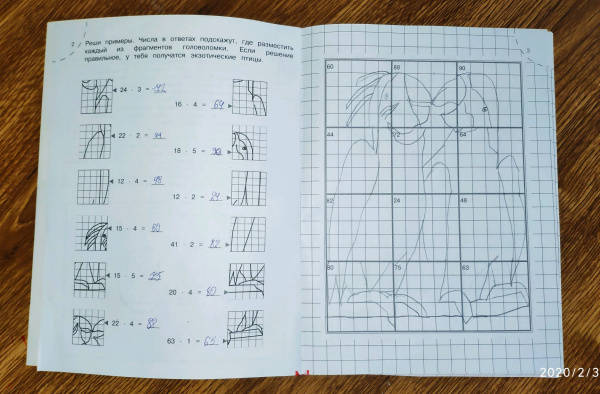 2 Реши примеры. Числа в ответах подскажут, где разместить
каждый из фрагментов головоломки. Если решение
правильное, у тебя получатся экзотические птицы.
24 · 3 = 72
16 · 4 = 64
22 · 2 = 44
18 · 5 = 90
12 · 4 = 48
12 · 2 = 24
15 · 4 = 60
41 · 2 = 82
15 · 5 = 75
20 · 4 = 80
22 · 4 = 88
63 · 1 = 63
3
60 88 90
44 72 64
82 24 48
80 75 63
2020/2/3